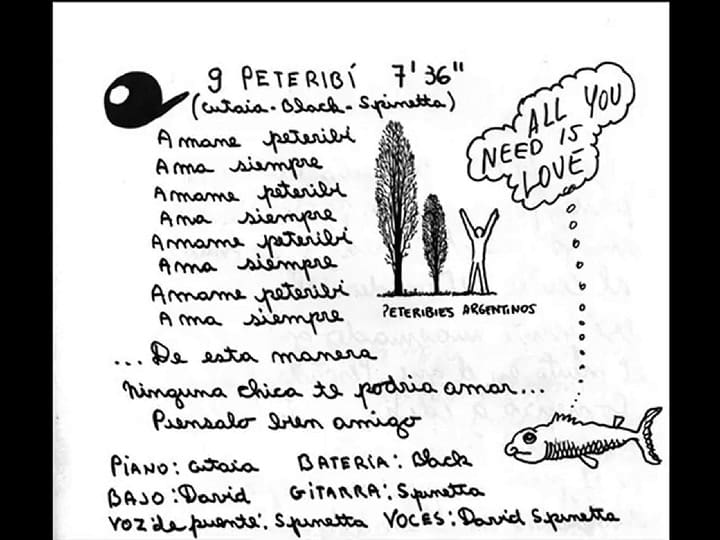 9 PETERIBÍ 7'36"
(Cutaia-Black-Spinetta)
Amame peteribí
Ama siempre
Amame peteribí
Ama siempre
Amame peteribí
Ama siempre
Amame peteribí
Ama siempre
ALL YOU
NEED IS
LOVE
PETERIBIES ARGENTINOS
...De esta manera
ninguna chica te podria amar...
Piensalo bien amigo
PIANO: Cutaia BATERÍA: Black
BAJO: David GITARRA: Spinetta
VOZ de puente: Spinetta VOCES: David Spinetta